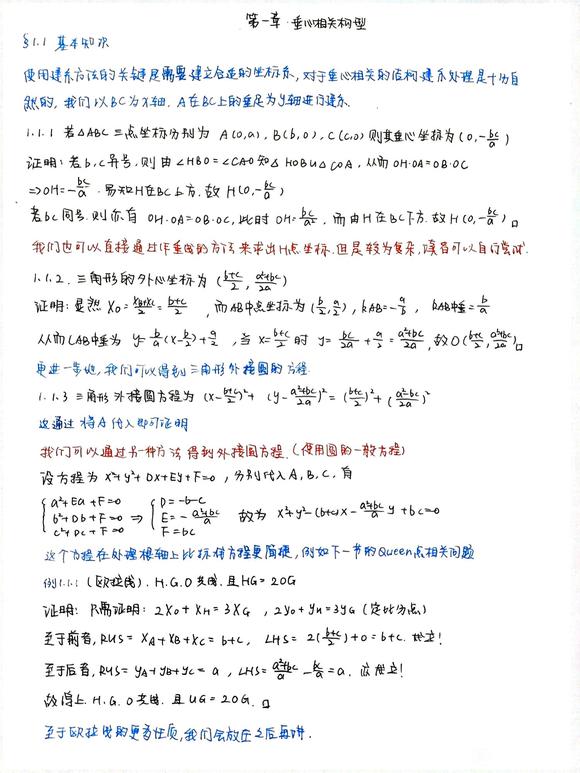 第一章·垂心相关构型
§1.1 基本知识
使用建系方法的关键是需要建立合适的坐标系,对于垂心相关的结构建系处理是十分自
然的,我们以BC为x轴,A在BC上的垂足为y轴进行建系.
1.1.1 若△ABC三点坐标分别为 A(0,a), B(b,0), C(c,0) 则其垂心坐标为(0,-bc/a)
证明:若b,c异号,则由∠HBO=∠CAO知△HOB∽△COA,从而OH·OA=OB·OC
⇒OH=-bc/a. 易知H在BC上方.故H(0,-bc/a)
若bc同号.则亦有 OH·OA=OB·OC,此时 OH=bc/a,而由H在BC下方.故H(0,-bc/a)□
我们也可以直接通过作垂线的方法来求出H点坐标.但是较为复杂,读者可以自行尝试.
1.1.2. 三角形的外心坐标为 (b+c/2, a²+bc/2a)
证明:显然 X₀=XB+XC/2=b+c/2,而AB中点坐标为(b/2,a/2), kAB=-a/b, kAB中垂=b/a
从而LAB中垂为 y=b/a(x-b/2)+a/2,当 x=b+c/2 时 y=bc/2a+a/2=a²+bc/2a,故O(b+c/2,a²+bc/2a)□
更进一步地,我们可以得到三角形外接圆的方程.
1.1.3 三角形外接圆方程为 (x-b+c/2)²+(y-a²+bc/2a)²=(b+c/2)²+(a²-bc/2a)²
这通过将A代入即可证明
我们可以通过另一种方法得到外接圆方程.(使用圆的一般方程)
设方程为 x²+y²+Dx+Ey+F=0,分别代入A,B,C,有
{a²+Ea+F=0 {D=-b-c
{b²+Db+F=0 ⇒ {E=-a²+bc/a 故为 x²+y²-(b+c)x-a²+bc/a y+bc=0
{c²+Dc+F=0 {F=bc
这个方程在处理根轴上比标准方程更简捷,例如下一节的Queen点相关问题
例1.1.1 (欧拉线). H.G.O共线.且HG=2OG
证明: 只需证明: 2X₀+XH=3XG, 2y₀+yH=3yG (定比分点)
至于前者,RHS=XA+XB+XC=b+c, LHS=2(b+c/2)+0=b+c. 成立!
至于后者,RHS=yA+yB+yC=a, LHS=a²+bc/a-bc/a=a. 亦成立!
故得上 H.G.O共线.且HG=2OG.□
至于欧拉线的更多性质,我们会放在之后再讲.